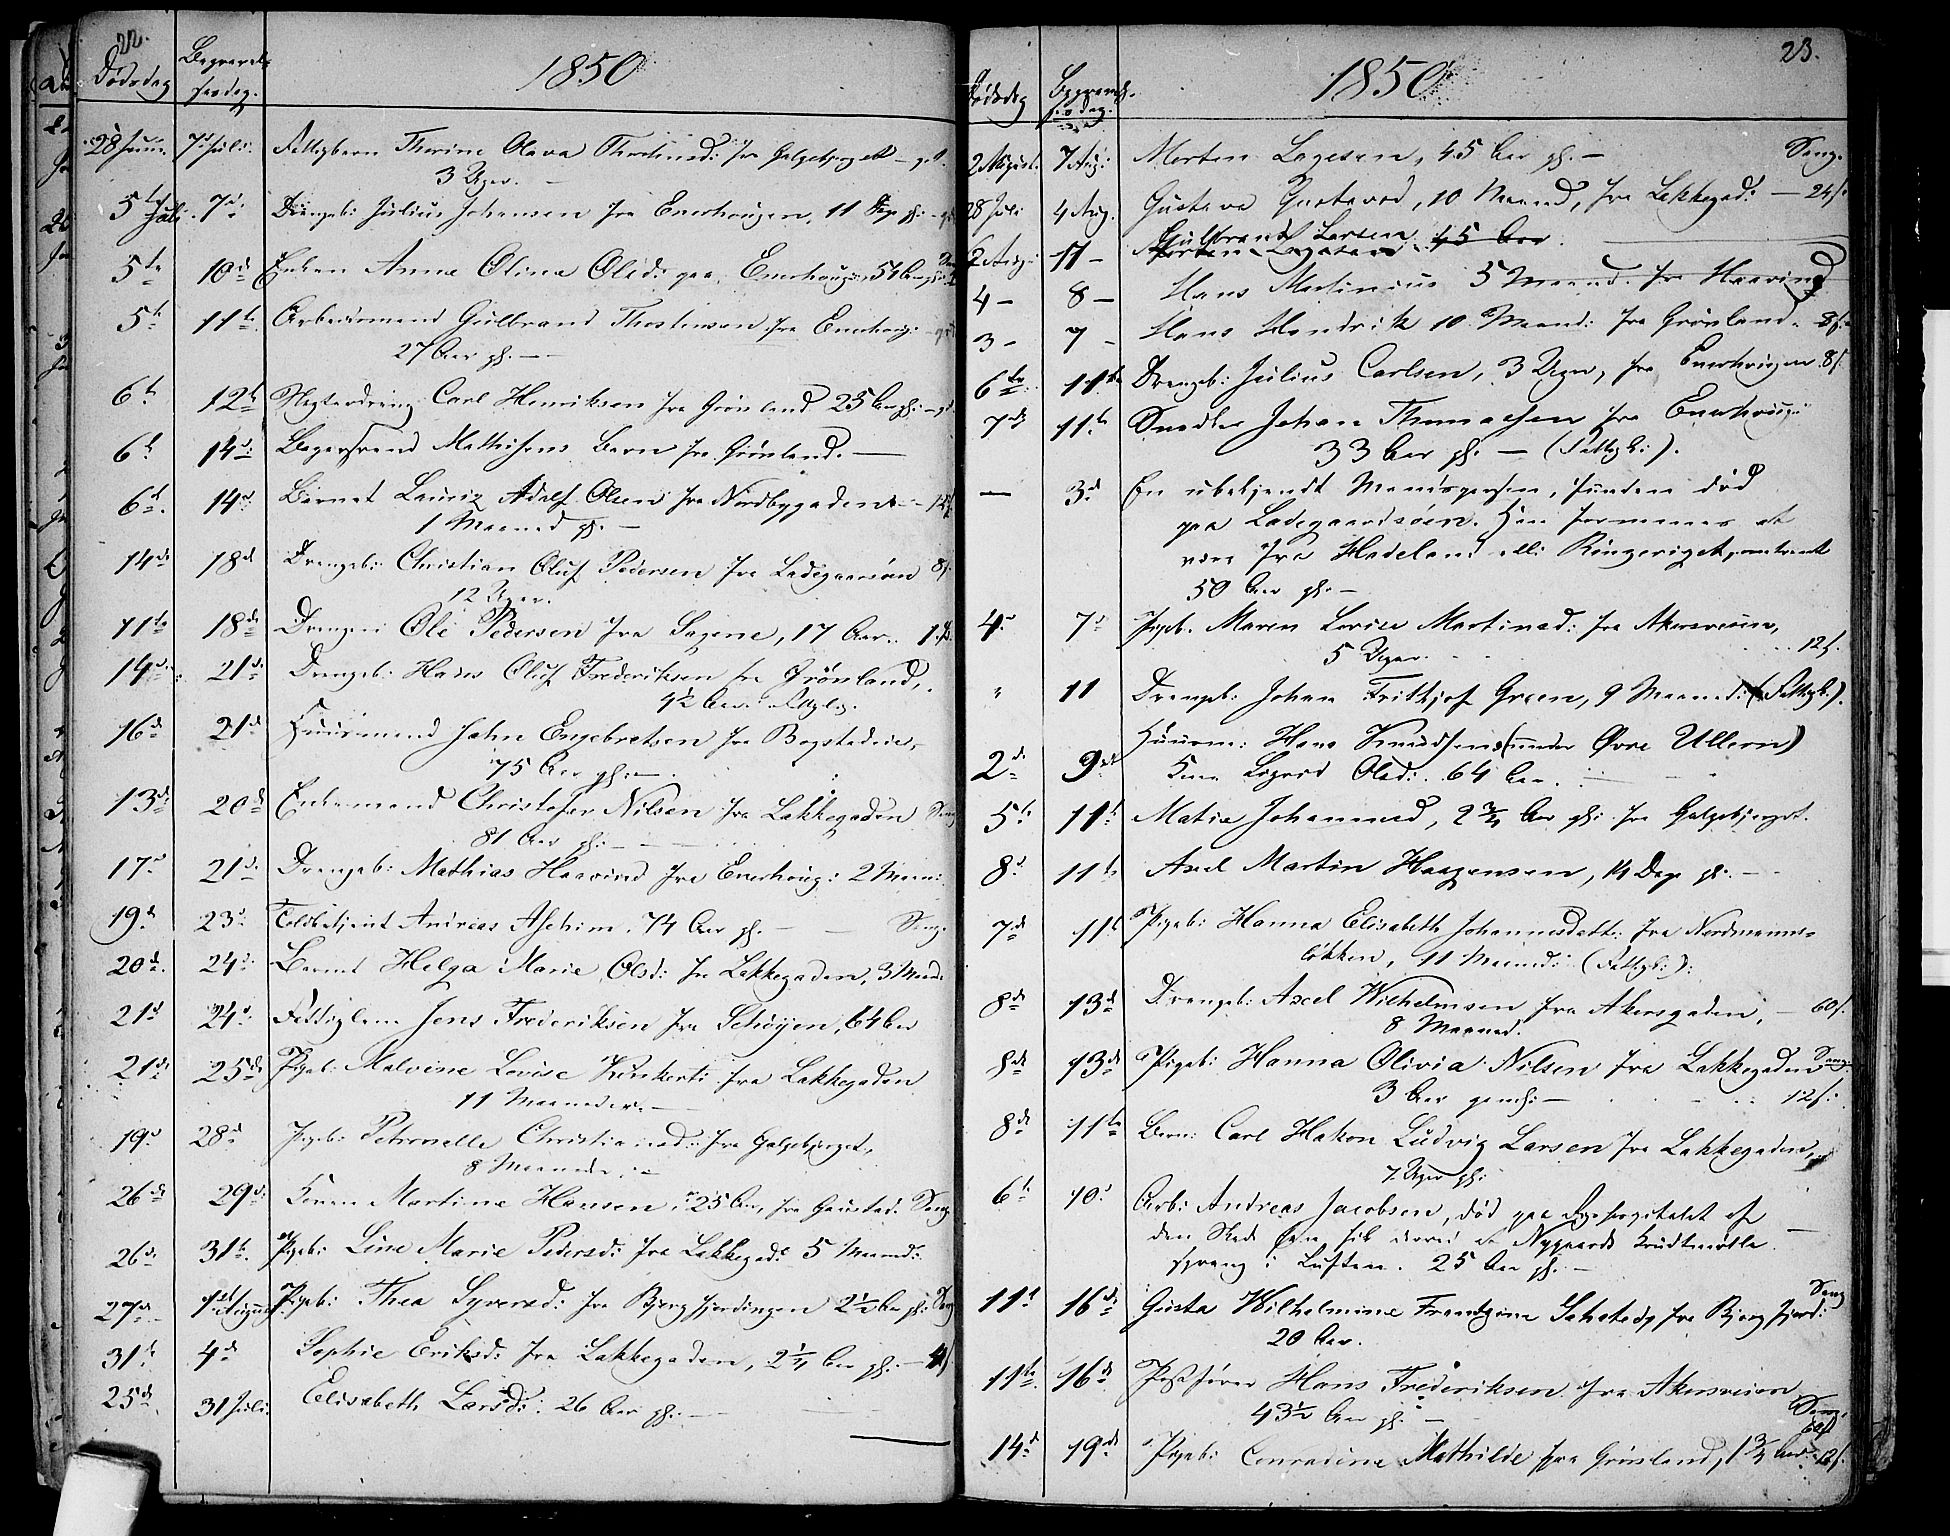 22.
Dødsdag
Begravel-
sesdag.
1850
28 Juni. 7d Juli. Fattigbarn Thorine Olava Thostensd: fra Galgebjerget
3 Uger.
5te Juli. 7d: Drengeb: Julius Johansen fra Enerhougen, 11
5te 10d Enken Anne Oline Olsd: paa Enerhougen 54 Aar
5te 11te Arbeidsmand Gulbrand Thostensen fra Enerhoug:
27 Aar gl. —
6te 12te Carl Henriksen fra Grønland 25 Aar gl: —
6te 14d: Bagersvend Mathisens Barn fra Grønland. —
6te 14d Barnet Lauriz Adolf Olsen fra Nordbygaden —
1 Maaned gl. —
14de 18d Drengeb: Christian Oluf Pedersen fra Ladegaarsøen 8/.
12 Uger.
11te 18de Drengen Ole Pedersen fra Sagene, 17 Aar.
14d: 21d: Drengeb: Hans Oluf Frederiksen fra Grønland,
4½ Aar.
16de 21de Huusmand John Engebretsen fra Bogstadveie,
75 Aar gl: —
13de 20de Enkemand Christofer Nilsen fra Lakkegaden Seng
81 Aar gl: —
17d 21d: Drengeb: Mathias Haavind fra Enerhoug: 2 Maan:
19d 23d: Toldbetjent Andreas Aschim. 74 Aar gl. — Seng.
20d. 24d: Barnet Helga Marie Olsd: fra Lakkegaden, 3 Maan
21d 24d: Fattiglem Jens Frederiksen fra Schøyen, 64 Aar
21de 25de Pigeb: Malvine Lovise fra Lakkegaden
11 Maaneder. —
19d 28d Pigeb: Petronelle Christiansd: fra Galgebjerget,
8 Maaneder —
26de 29d: Konen Martine Hansen, 25 Aar, fra Gaustad. Seng
26d: 31te. Pigeb: Line Marie Pedersd: fra Lakkegad: 5 Maaned:
27de 1st August. Pigeb: Thea Syversd: fra Bjergfjerdingen 2½ Aar gl: Seng
31te 4d Sophie Eriksd: fra Lakkegaden, 2¼ Aar gl. —
25de 31 Juli. Elisabeth Larsd: 26 Aar gl. —
23.
Dødsdag
Begravel-
sesdag.
1850
2 August. 7 Aug: Morten Lagesen, 45 Aar gl. — Seng.
28 Juli 4 Aug. Gustava Gustavsd, 10 Maaned, fra Lakkegad: — 24/.
Gulbrand Larsen
6 Aug: 11 — Morten Lagesen 45 Aar.
4 — 8 — Hans Martinius 5 Maaned. fra Haavind
3 — 7 — Hans Hendrik 10 Maaned: fra Grønland. 8/.
6te 11te Drengeb: Julius Carlsen, 3 Uger, fra Enerhougen 8/.
7de 11te Snedker Johan Thomassen fra Enerhoug:
33 Aar gl. — (Fattigk:).
— 3d En ubekjendt Mandsperson, funden død
paa Ladegaardsøen. Han formenes at
være fra Hadeland ell: Ringeriget, omtrent
50 Aar gl. —
4d: 7d Pigeb. Maren Lovise Martinsd: fra Akersveien,
5 Uger. 12/.
" 11 Drengeb: Johan Frithjof Green, 9 Maaned: (Fattigk:).
2de 9de Huusm: Hans Knudsens (under Øvre Ullern)
Kone Sigrid Olsd: 64 Aar.
5te 11te Matia Johannesd, 2¾ Aar gl: fra Galgebjerget.
8d 11te Axel Martin Haagensen, 14 Dage gl. —
7de 11te Pigeb: Hanna Elisabeth Johannesdatt: fra Nordmanns-
løkken, 11 Maaned: (Fattigk:).
8de 13de Drengeb: Axel Wilhelmsen fra Akersgaden, — 60/.
8 Maaned.
8de 13de Pigeb: Hanna Olivia Nilsen fra Lakkegaden Seng.
3 Aar gaml: — 12/.
8de 11te Barn: Carl Hakon Ludvig Larsen fra Lakkegaden,
7 Uger gl:
6te 10d Arb: Andreas Jacobsen, død paa Sygehospitalet af
den Skade han fik derved at Nygaards Krudtmølle
sprang i Luften. 25 Aar gl. —
11te 16de Gusta Wilhelmine Frantzine fra Bjergfjerd: Seng
20 Aar.
11te 16de Postfører Hans Frederiksen fra Akersveien
43½ Aar gl. — Seng.
60/
14d 19de Pigeb: Conradine Mathilde fra Grønland, 1¾ Aar. 12/.